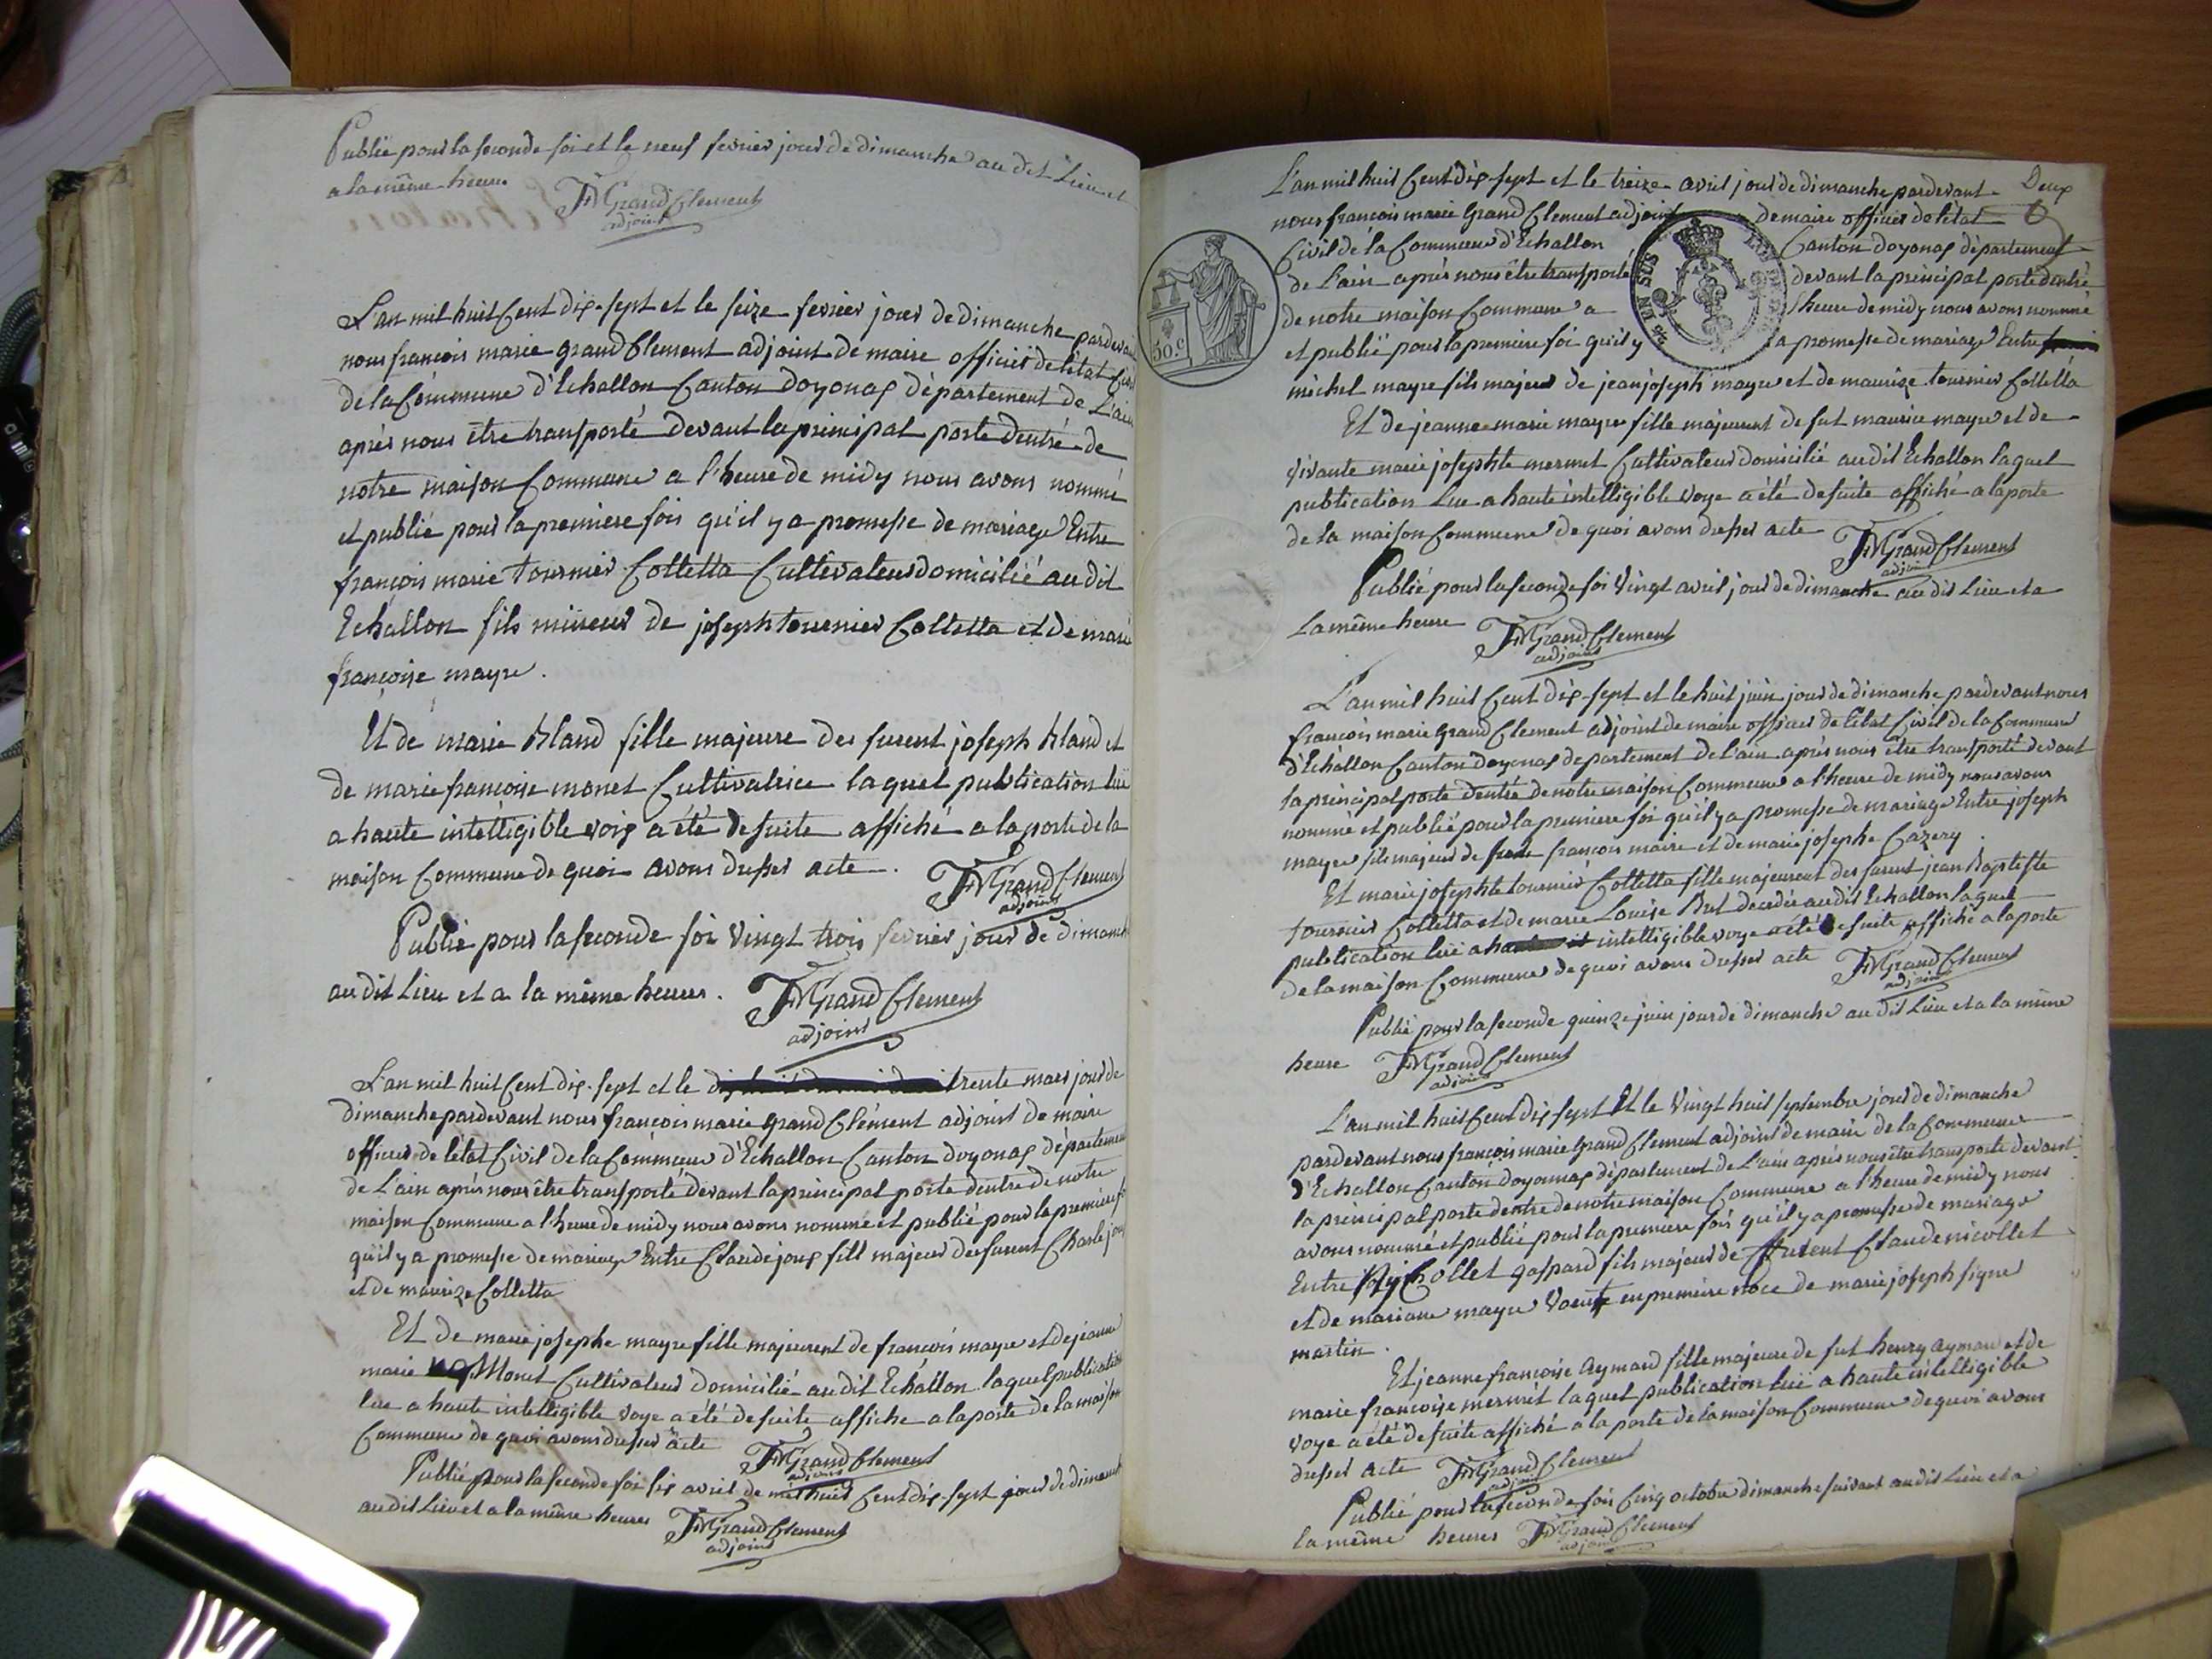 Publié pour la seconde foi et le neuf fevrier jour de dimanche au dit Lieu et
a la même heure FMGrandClement
adjoint
L'an mil huit Cent dix-sept et le seize fevrier jour de dimanche pardevant
nous françois marie grandClement adjoint de maire officier de l'état Civil
de la Commune d'Echallon Canton doyonax département de L'ain
après nous être transporté devant la principal porte dentré de
notre maison Commune a l'heure de midy nous avons nommé
et publié pour la premiere fois qu'il y a promesse de mariage Entre
françois marie tournier Colletta Cultivateur domicilié au dit
Echallon fils mineur de joseph tournier Colletta et de marie
françoise mayre.
Et de marie Bland fille majeure des furent joseph Bland et
de marie françoise monet Cultivatrice laquel publication lue
a haute intelligible voix a été desuite affiché a la porte de la
maison Commune de quoi avons dresser acte. FMGrandClement
adjoint
Publié pour la seconde foi Vingt trois fevrier jour de dimanche
au dit Lieu et a la même heures. FMGrandClement
adjoint
L'an mil huit Cent dix-sept et le trente mars jour de
dimanche pardevant nous françois marie grandClément adjoint de maire
officier de létat Civil de la Commune d'Echallon Canton doyonax département
de L'ain après nous être transporté devant la principal porte dentre de notre
maison Commune a l'heure de midy nous avons nommé et publié pour la première fo
qu'il y a promesse de mariage Entre Claude joux fill majeur des furent Charle joux
et de maurize Colletta
Et de marie josephe mayre fille majeurent de françois mayre et de jeanne
marie Monet Cultivateur domicilié au dit Echallon laquel publication
lue a haute intelligible voye a été desuite affiche a la porte de la maison
Commune de quoi avons dresser acte FMGrandClement
adjoint
Publié pour la seconde foi six avril de mil huit Cent dix-sept jour de dimanche
au dit Lieu et a la même heures FMGrandClement
adjoint
L'an mil huit Cent dix-sept et le treize avril jour de dimanche pardevant Deux
nous françois marie GrandClement adjoint de maire officier de l'état
Civil de la Commune d'Echallon Canton doyonax département
de L'ain après nous être transporté devant la principal porte dentré
de notre maison Commune a l'heure de midy nous avons nommé
et publié pour la première foi qu'il y a promesse de mariage Entre
michel mayre fils majeur de jean joseph mayre et de maurize tournier Colletta
Et de jeanne marie mayre fille majeurent de fut maurice mayre et de
vivante marie josephte mermet Cultivateur domicilié au dit Echallon laquel
publication Lue a haute intelligible voye a été desuite affiché a la porte
de la maison Commune de quoi avons dresser acte FMGrandClement
adjoint
50.c
EN SUS
Publié pour la seconde foi Vingt avril jour de dimanche au dit Lieu et a
La même heure FMGrandClement
adjoint
L'an mil huit Cent dix-sept et le huit juin jour de dimanche pardevant nous
françois marie GrandClement adjoint de maire officier de l'état Civil de la Commune
d'Echallon Canton doyonax departement de l'ain après nous être transporté devant
la principal porte dentré de notre maison Commune a l'heure de midy nous avons
nommé et publié pour la premiere foi qu'il y a promesse de mariage Entre joseph
mayre fils majeur de françois maire et de marie josephe Cazery
Et marie josephte tournier Colletta fille majeurent des furent jean Baptiste
tournier Colletta et de marie Louise But decedée au dit Echallon laquel
publication lue a intelligible voye a été desuite affiché a la porte
de la maison Commune de quoi avons dresser acte FMGrandClement
adjoint
Publié pour la seconde quinze juin jour de dimanche au dit Lieu et a la même
heure FMGrandClement
adjoint
L'an mil huit Cent dix sept Et le Vingt huit septembre jour de dimanche
pardevant nous françois marie GrandClement adjoint de maire de la Commune
d'Echallon Canton doyonnax département de L'ain après nous être transporté devant
la principal porte dentre de notre maison Commune a l'heure de midy nous
avons nommé et publié pour la premiere fois qu'il y a promesse de mariage
Entre gaspard fils majeur de furent Claude nicollet
et de mariane mayre en premiere noce de marie joseph signe
martin.
Et jeanne françoise Aymard fille majeure de fut henry Aymard et de
marie françoise mermet laquel publication lue a haute intelligible
voye a été desuite affiché a la porte de la maison Commune de quoi avons
dresser acte FMGrandClement
adjoint
Publié pour la seconde fois Cinq octobre dimanche suivant au dit Lieu et a
la même heures FMGrandClement
adjoint